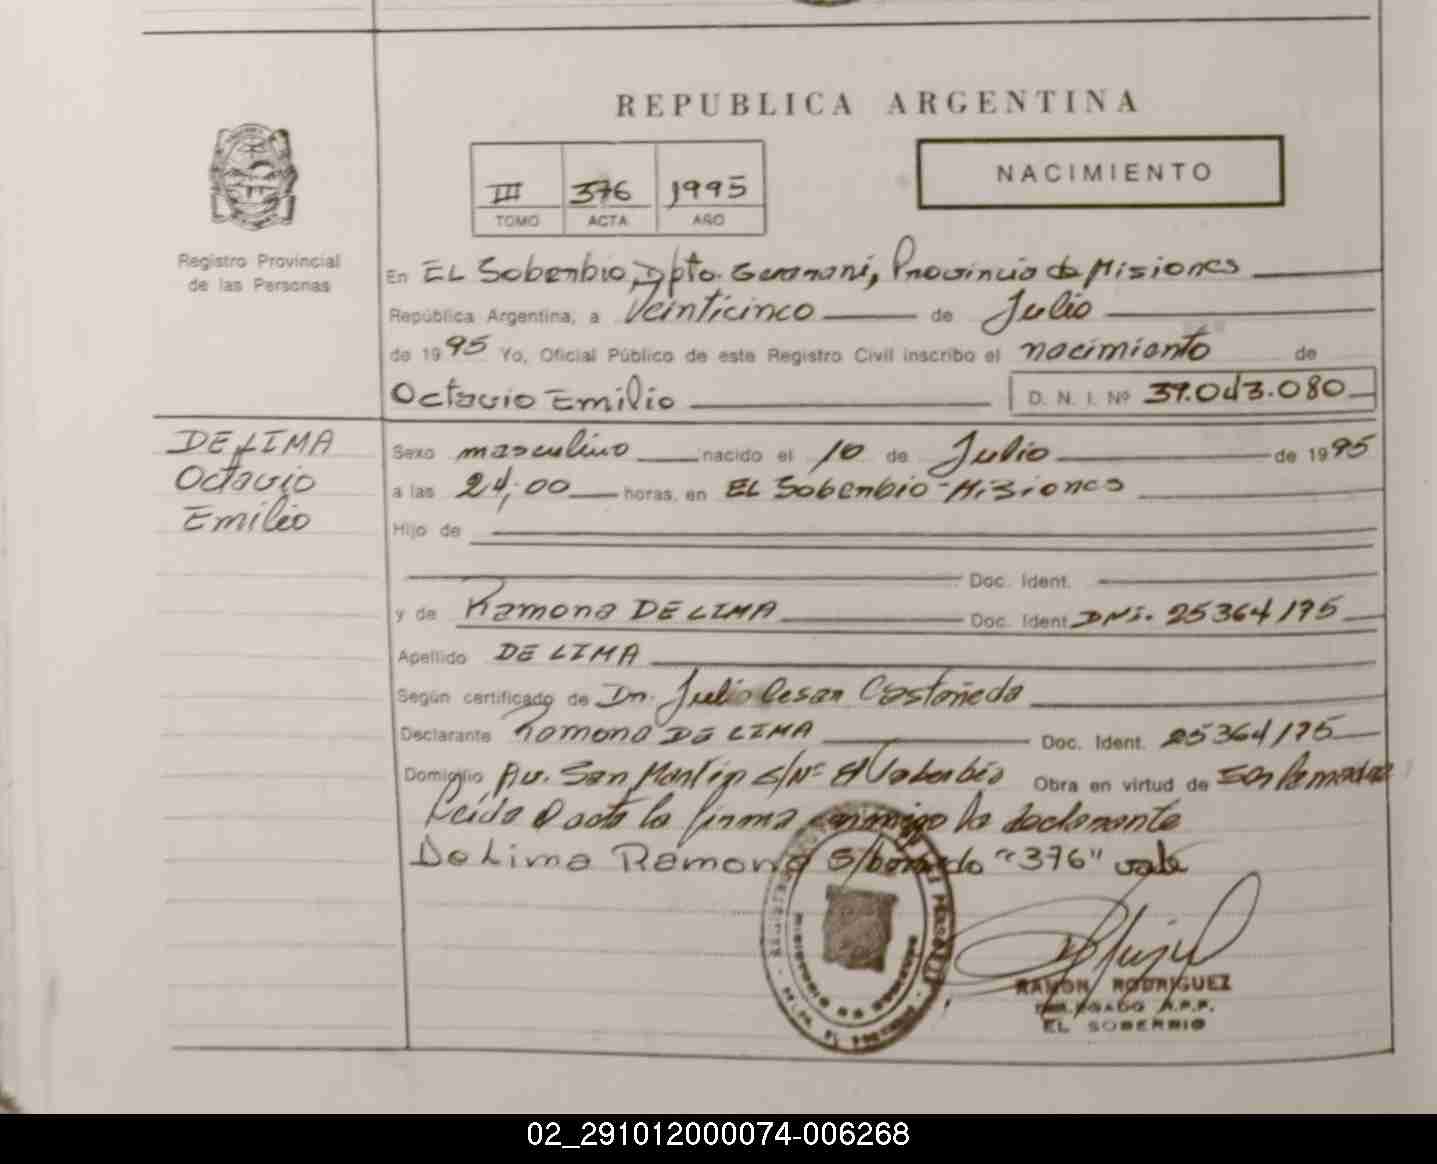 REPUBLICA ARGENTINA
NACIMIENTO
III 376 1995
TOMO ACTA AÑO
Registro Provincial
de las Personas
En EL Soberbio, Dpto. Guarani, Provincia de Misiones
República Argentina, a Veinticinco de Julio
de 1995 Yo, Oficial Público de este Registro Civil inscribo el nacimiento de
Octavio Emilio D. N. I. Nº 39.043.080
DE LIMA
Octavio
Emilio
Sexo masculino nacido el 10 de Julio de 1995
a las 24,00 horas, en EL Soberbio - Misiones
Hijo de
Doc. Ident.
y de Ramona DE LIMA Doc. Ident. DNI. 25364195
Apellido DE LIMA
Según certificado de Dr. Julio Cesar Castañeda
Declarante Ramona DE LIMA Doc. Ident. 25364195
Domicilio Av. San Martin s/Nº El Soberbio Obra en virtud de ser la madre
Leida el acta la firma conmigo la declarante
De Lima Ramona S/borrado "376" vale
RAMON RODRIGUEZ
DELEGADO R.P.P.
EL SOBERBIO
02_291012000074-006268